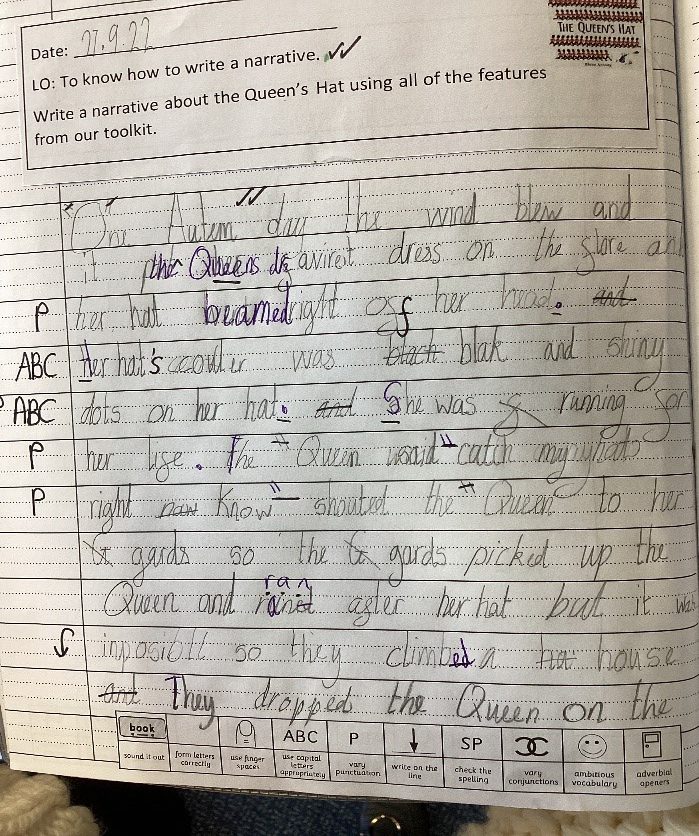 THE QUEEN'S HAT
Date: 27.9.22
LO: To know how to write a narrative.
Write a narrative about the Queen's Hat using all of the features
from our toolkit.
One Autem day the wind blew and
it the Queens dress on the
P her hat right off her head. and
ABC Her hat's was black blak and shiny
ABC dots on her hat. and She was running for
P her life. The Queen said "catch my
P right now know" shouted the Queen to her
G gards so the G gards picked up the
ran
Queen and after her hat but it was
↓ inposibll so they climbed a house
And They dropped the Queen on the
book ABC P ↓ SP
sound it out form letters correctly use finger spaces use capital letters appropriately vary punctuation write on the line check the spelling vary conjunctions ambitious vocabulary adverbial openers